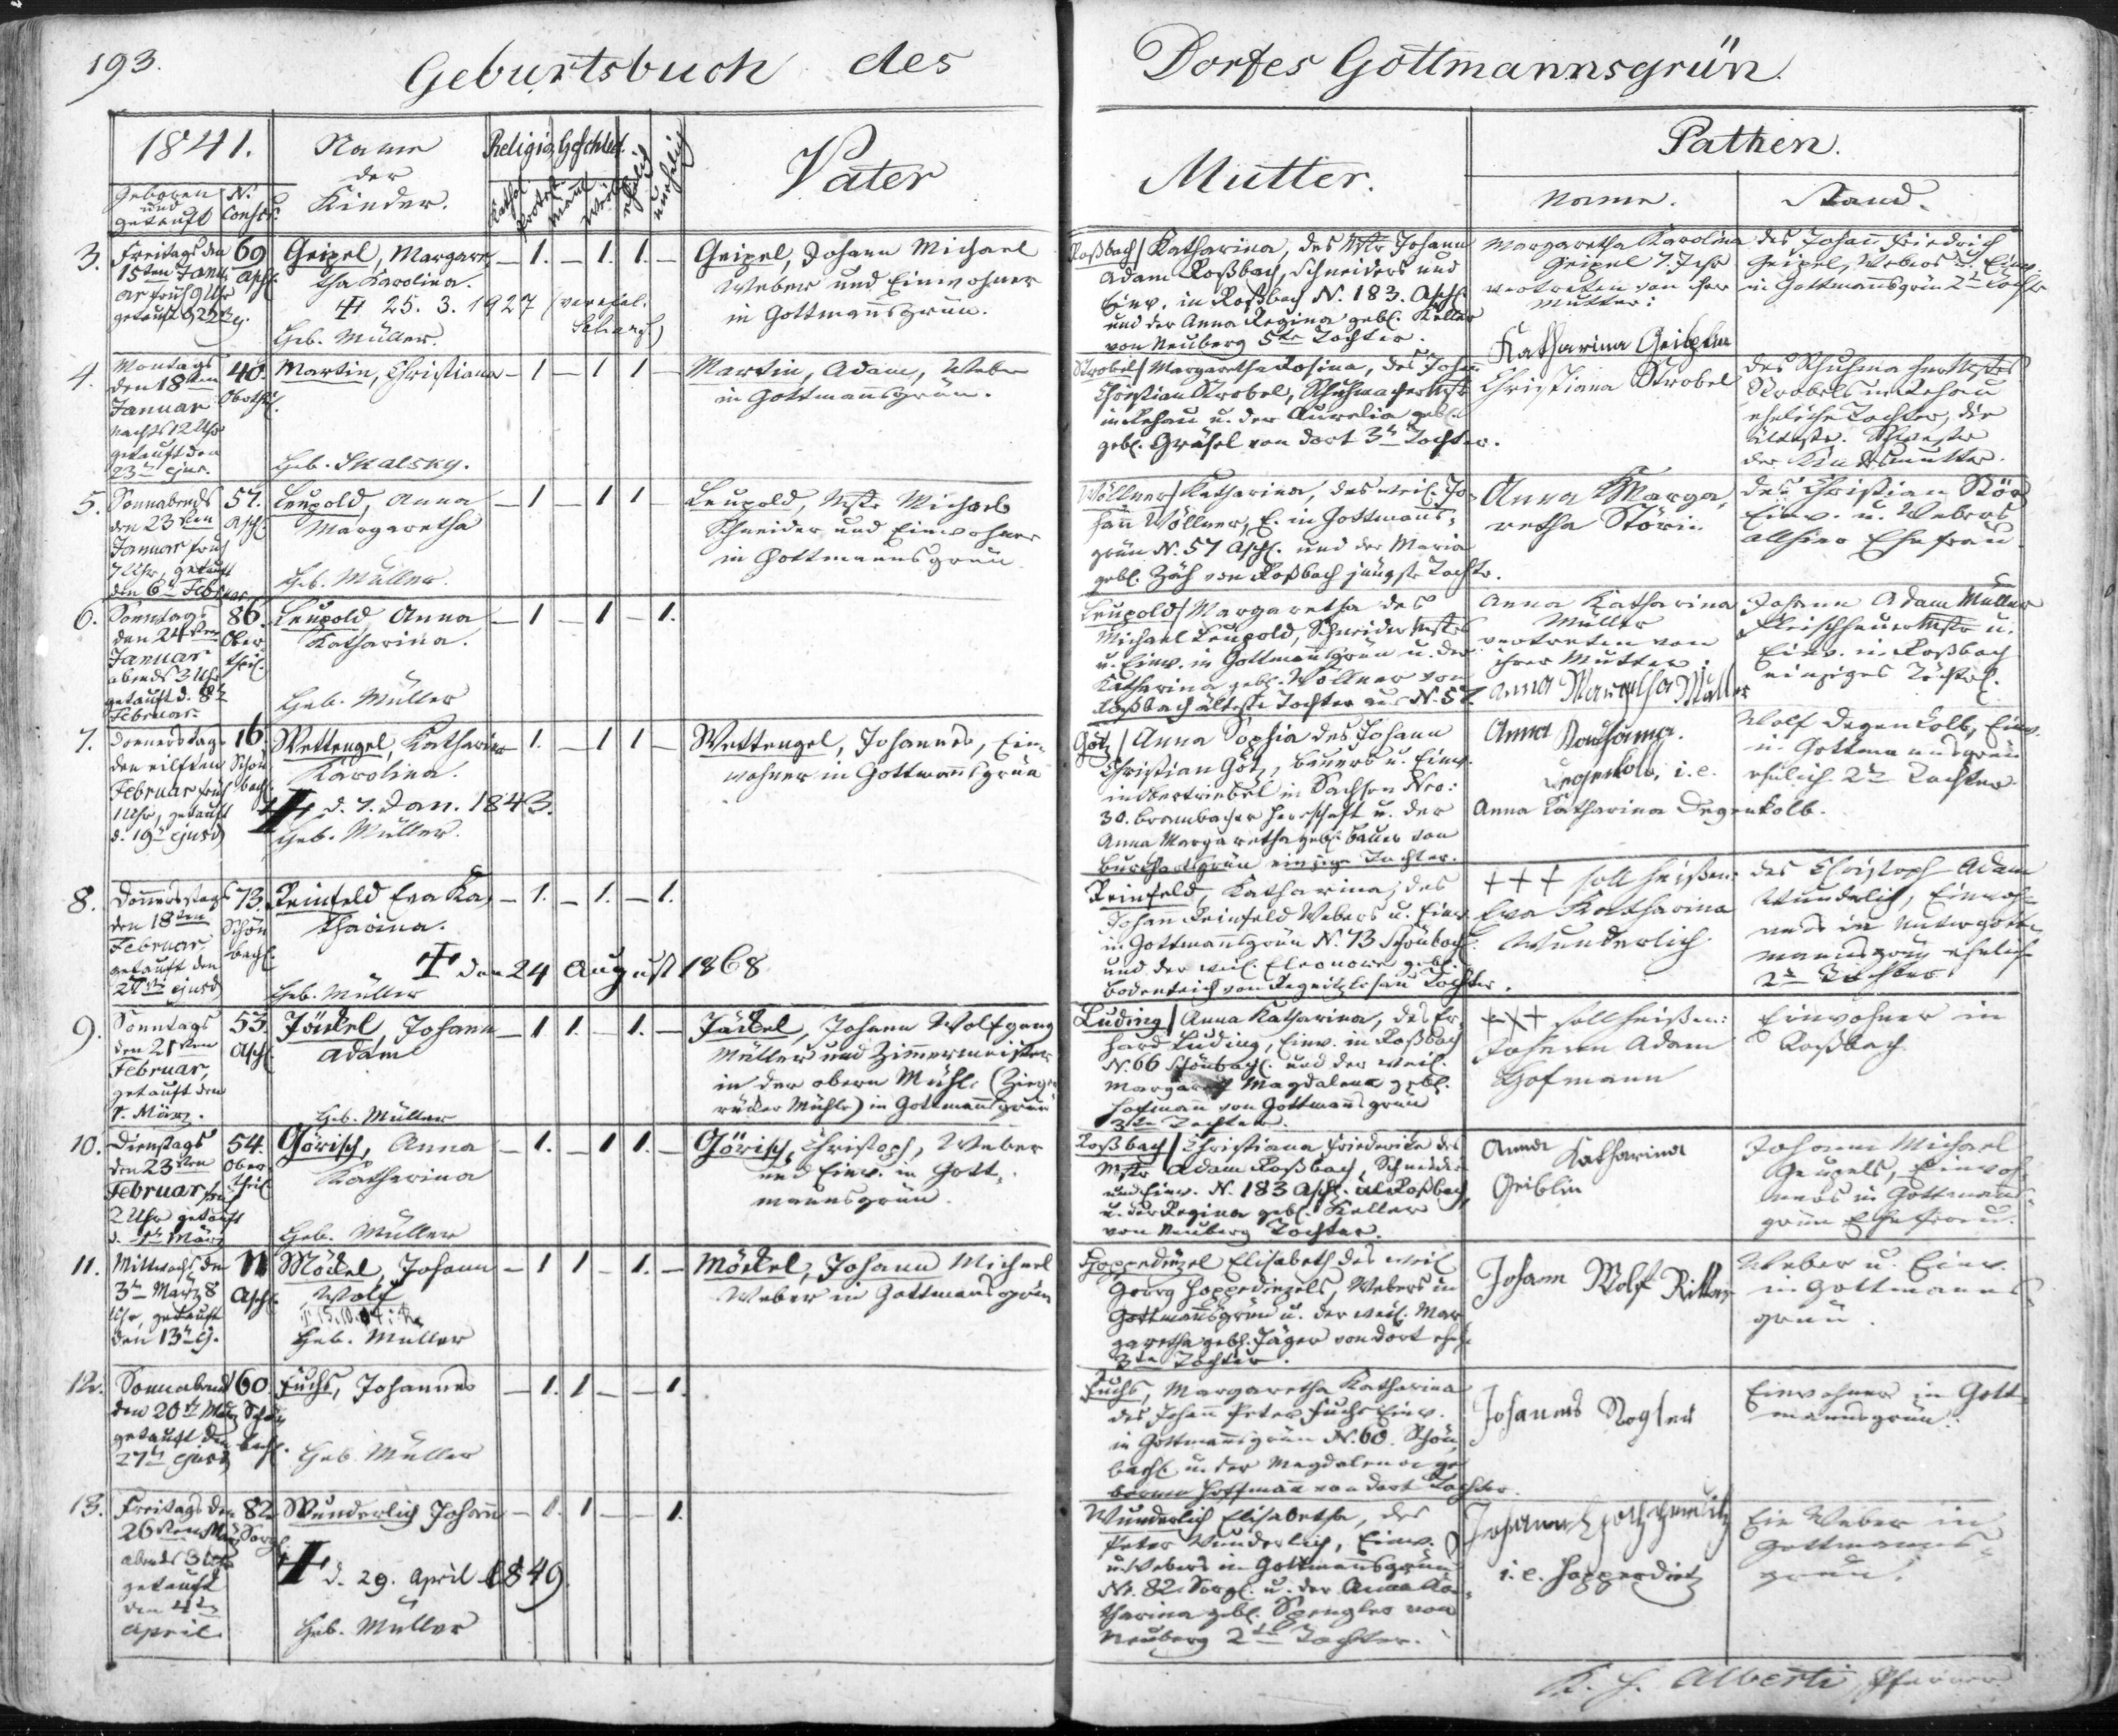 193.
Geburtsbuch des
Dorfes Gottmannsgrün.
1841.
Name
der
Kinder.
Religio
Geschlecht.
ehelich
unehelich
Vater
Mutter.
Pathen.
Geboren
und
getauft
N.
Conscr.
Kathol
Protest
Männl
Weibl
Name.
Stand.
3.
Freitags den
15ten Janu
ar früh 9 Uhr
getauft d 22
69
Asch.
Geipel, Margare
tha Karolina.
25. 3. 1927 (verehel.
Geb. Müller.
– 1. – 1. 1. –
Geipel, Johann Michael
Weber und Einwohner
in Gottmannsgrün.
Roßbach/ Katharina, des Mstr Johann
Adam Roßbach, Schneiders und
Einw. in Roßbach N. 183. Asch.
und der Anna Regina gebl. Keller
von Neuberg 5te Tochter.
Margaretha Karolina
Geipel 7 Jahr
vertreten von ihrer
Mutter:
Katharina Geipelin
des Johann Friedrich
Geipel, Webers u. Einw.
in Gottmannsgrün 2te Tochter
4.
Montags
den 18ten
Januar
Nachts 12 Uhr
getauft den
23t ejus.
40.
Oberthl.
Martin, Christiana
Geb. Skalsky.
– 1 – 1 1 –
Martin, Adam, Weber
in Gottmannsgrün.
Strobel/ Margaretha Rosina, des Johann
Christian Strobel, Schuhmachermstr
in Rehau u. der Aurelia gebl.
gebl. Gräsel von dort 3te Tochter.
Christiana Strobel
des Schuhmachermstrs
Strobels in Rehau
eheliche Tochter, die
älteste. Schwester
der Kindsmutter.
5.
Sonnabends
den 23sten
Januar früh
7 Uhr, getauft
den 6t Februar
57.
Asch
Leupold, Anna
Margaretha
Geb. Müller.
– 1 – 1 1 –
Leupold, Mstr Michael
Schneider und Einwohner
in Gottmannsgrün
Wöllner/ Katharina, des weil. Jo
hann Wöllner, E. in Gottmanns
grün N. 57 Asch. und der Maria
gebl. Zäh von Roßbach jüngste Tochter.
Anna Marga
retha Störi
des Christian Stör
Einw. u. Webers
allhier Ehefrau.
6.
Sonntags
den 24sten
Januar
abends 3 Uhr
getauft d. 8t
Februar
86.
Ober
theil.
Leupold, Anna
Katharina.
Geb. Müller
– 1 – 1 – 1.
Leupold/ Margaretha des
Michael Leupold, Schneidermstrs
u. Einw. in Gottmannsgrün u. der
Katharina gebl. Wöllner von
Roßbach älteste Tochter aus N. 57
Anna Katharina
Müller
vertreten von
ihrer Mutter:
Anna Margetha Müller
Johann Adam Müller
Fleischhauermstr u.
Einw. in Roßbach
einziges Töchterl.
7.
Donnerstags
den eilften
Februar früh
1 Uhr, getauft
d. 19t ejusd
16.
Schön
bach.
Wettengel, Katharina
Karolina.
d. 7. Jan. 1843.
Geb. Müller.
– 1. – 1 1 –
Wettengel, Johannes, Ein
wohner in Gottmannsgrün
Götz/ Anna Sophia des Johann
Christian Götz, Bauers u. Einw.
in Obertriebel in Sachsen Nro:
30. brambacher Herrschaft u. der
Anna Margaretha gebl. Bauer von
Burkhardsgrün einzige Tochter.
Anna
Degenkolb, i. e.
Anna Katharina Degenkolb.
Wolf Degenkolb, Einw.
in Gottmannsgrün
ehelich 2te Tochter
8.
Donnerstags
den 18ten
Februar,
getauft den
ejusd
73.
Schön
bach.
Reinfeld Eva Ka
tharina.
den 24 August 1868
Geb. Müller
– 1. – 1. – 1.
Reinfeld, Katharina, des
Johann Reinfeld Webers u. Einw.
in Gottmannsgrün N. 73 Schönbach.
und der weil. Eleonora gebl.
Bodenteich von Regnitzlosau Tochter.
+++ soll heißen:
Eva Katharina
Wunderlich
des Christoph Adam
Wunderlich, Einwoh
ners in Untergott
mannsgrün ehelich
2te Tochter
9.
Sonntags
den 21sten
Februar,
getauft den
1. März.
53.
Asch.
Jäckel, Johann
Adam
Geb. Müller
– 1 1. – 1. –
Jäckel, Johann Wolfgang
Müller und Zimmermeister
in der obern Mühle (Ziegen
rücker Mühle) in Gottmannsgrün
Luding/ Anna Katharina, des Er
hard Luding, Einw. in Roßbach
N. 66 Schönbach. und der weil.
Margaret Magdalena gebl.
Hofmann von Gottmannsgrün
3te Tochter.
+++ soll heißen:
Johann Adam
Hofmann
Einwohner in
Roßbach
10.
Dienstags
den 23sten
Februar früh
2 Uhr getauft
d. 1t März
54.
Ober
theil
Görisch, Anna
Katharina
Geb. Müller
– 1. – 1 1. –
Görisch, Christoph, Weber
und Einw. in Gott
mannsgrün.
Roßbach/ Christiana Friederike des
Mstr Adam Roßbach, Schneider
und Einw. N. 183 Asch. in Roßbach,
u. der Regina gebl. Keller
von Neuberg Tochter.
Anna Katharina
Geiblin
Johann Michael
Geupels, Einwoh
ners in Gottmanns
grün Ehefrau.
11.
Mittwochs den
3t März 8
Uhr, getauft
den 13t ej.
11
Asch.
Möckel, Johann
Wolf
Geb. Müller
– 1 1 – 1. –
Möckel, Johann Michael
Weber in Gottmannsgrün
Hoppedinzel Elisabeth des weil
Georg Hoppedinzels, Webers in
Gottmannsgrün u. der weil. Mar
garetha gebl. Jäger von dort ehel.
3te Tochter.
Johann Wolf Ritter
Weber u. Einw.
in Gottmanns
grün.
12.
Sonnabend
den 20t März
getauft den
27t ejusd
60
Schön
bach.
Fuchs, Johannes
Geb. Müller
– 1. 1 – – 1.
Fuchs, Margaretha Katharina
des Johann Peter Fuchs Einw.
in Gottmannsgrün N. 60. Schön
bach. u. der Magdalena ge
bornen Hoffmann von dort Tochter.
Johannes Nogler
Einwohner in Gott
mannsgrün.
13.
Freitags den
26sten März
abends 3 Uhr
getauft
den 4ten
April
82
Sorg.
Wunderlich Johann
d. 29. April 1849
Geb. Müller
– 1. 1 – – 1.
Wunderlich Elisabetha, des
Peter Wunderlich, Einw.
u. Webers in Gottmannsgrün
Nr. 82 Sorg. u. der Anna Ka
tharina gebl. Spengler von
Neuberg 2te Tochter.
Johann
i. e. Hopperdietz
Ein Weber in
Gottmanns
grün.
Alberti, Pfarrer